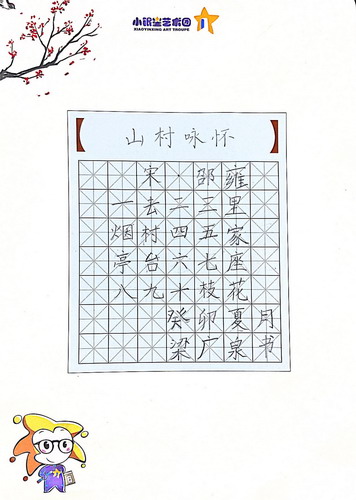 小银星艺术团
XIAOYINXING ART TROUPE
山村咏怀
宋·邵雍
一去二三里
烟村四五家
亭台六七座
八九十枝花
癸卯夏月
梁广泉书